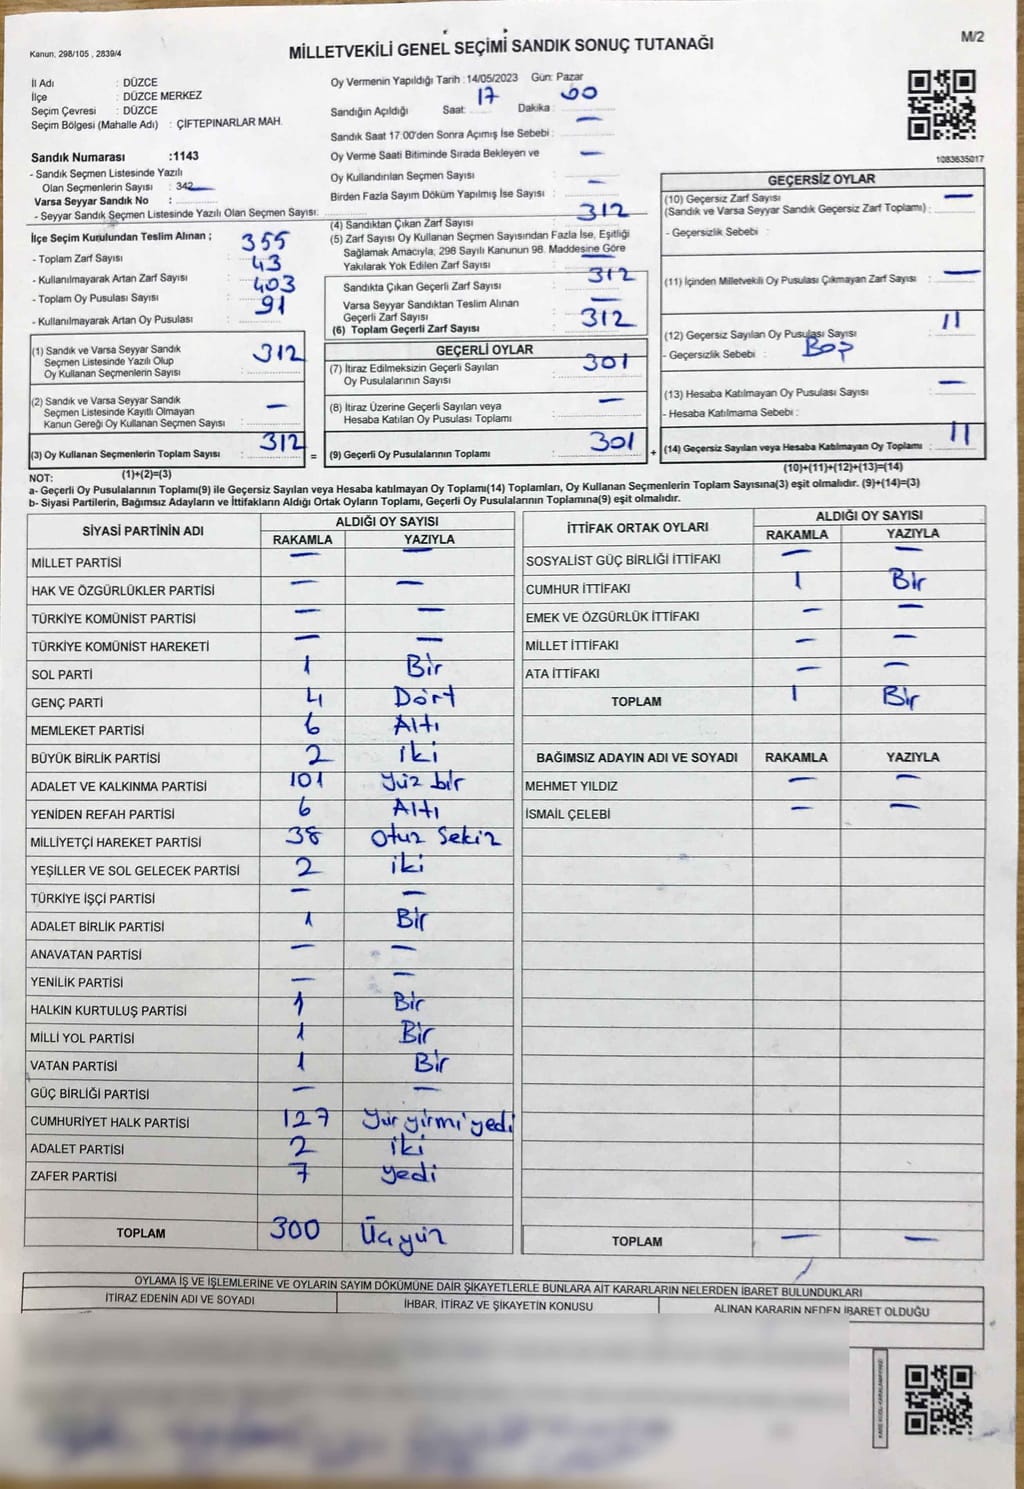 Kanun, 298/105 , 2839/4
MİLLETVEKİLİ GENEL SEÇİMİ SANDIK SONUÇ TUTANAĞI
M/2
İl Adı : DÜZCE
İlçe : DÜZCE MERKEZ
Seçim Çevresi : DÜZCE
Seçim Bölgesi (Mahalle Adı) : ÇİFTEPINARLAR MAH.
Sandık Numarası :1143
- Sandık Seçmen Listesinde Yazılı
Olan Seçmenlerin Sayısı : 342
Varsa Seyyar Sandık No :
- Seyyar Sandık Seçmen Listesinde Yazılı Olan Seçmen Sayısı:
Oy Vermenin Yapıldığı Tarih :14/05/2023 Gün: Pazar
Sandığın Açıldığı Saat: 17 Dakika : 00
Sandık Saat 17:00'den Sonra Açımış İse Sebebi : —
Oy Verme Saati Bitiminde Sırada Bekleyen ve
Oy Kullandırılan Seçmen Sayısı : —
Birden Fazla Sayım Döküm Yapılmış İse Sayısı : —
1083635017
İlçe Seçim Kurulundan Teslim Alınan ;
- Toplam Zarf Sayısı : 355
- Kullanılmayarak Artan Zarf Sayısı : 43
- Toplam Oy Pusulası Sayısı : 403
- Kullanılmayarak Artan Oy Pusulası : 91
(1) Sandık ve Varsa Seyyar Sandık
Seçmen Listesinde Yazılı Olup
Oy Kullanan Seçmenlerin Sayısı : 312
(2) Sandık ve Varsa Seyyar Sandık
Seçmen Listesinde Kayıtlı Olmayan
Kanun Gereği Oy Kullanan Seçmen Sayısı : —
(3) Oy Kullanan Seçmenlerin Toplam Sayısı : 312
(4) Sandıktan Çıkan Zarf Sayısı : 312
(5) Zarf Sayısı Oy Kullanan Seçmen Sayısından Fazla İse, Eşitliği
Sağlamak Amacıyla, 298 Sayılı Kanunun 98. Maddesine Göre
Yakılarak Yok Edilen Zarf Sayısı : —
Sandıkta Çıkan Geçerli Zarf Sayısı : 312
Varsa Seyyar Sandıktan Teslim Alınan
Geçerli Zarf Sayısı : —
(6) Toplam Geçerli Zarf Sayısı : 312
GEÇERLİ OYLAR
(7) İtiraz Edilmeksizin Geçerli Sayılan
Oy Pusulalarının Sayısı : 301
(8) İtiraz Üzerine Geçerli Sayılan veya
Hesaba Katılan Oy Pusulası Toplamı : —
= (9) Geçerli Oy Pusulalarının Toplamı : 301
GEÇERSİZ OYLAR
(10) Geçersiz Zarf Sayısı
(Sandık ve Varsa Seyyar Sandık Geçersiz Zarf Toplamı) : —
- Geçersizlik Sebebi :
(11) İçinden Milletvekili Oy Pusulası Çıkmayan Zarf Sayısı : —
(12) Geçersiz Sayılan Oy Pusulası Sayısı : 11
- Geçersizlik Sebebi : Boş
(13) Hesaba Katılmayan Oy Pusulası Sayısı : —
- Hesaba Katılmama Sebebi :
+ (14) Geçersiz Sayılan veya Hesaba Katılmayan Oy Toplamı : 11
NOT: (1)+(2)=(3)
(10)+(11)+(12)+(13)=(14)
a- Geçerli Oy Pusulalarının Toplamı(9) ile Geçersiz Sayılan veya Hesaba katılmayan Oy Toplamı(14) Toplamları, Oy Kullanan Seçmenlerin Toplam Sayısına(3) eşit olmalıdır. (9)+(14)=(3)
b- Siyasi Partilerin, Bağımsız Adayların ve İttifakların Aldığı Ortak Oyların Toplamı, Geçerli Oy Pusulalarının Toplamına(9) eşit olmalıdır.
SİYASİ PARTİNİN ADI ALDIĞI OY SAYISI
RAKAMLA YAZIYLA
MİLLET PARTİSİ — —
HAK VE ÖZGÜRLÜKLER PARTİSİ — —
TÜRKİYE KOMÜNİST PARTİSİ — —
TÜRKİYE KOMÜNİST HAREKETİ — —
SOL PARTİ 1 Bir
GENÇ PARTİ 4 Dört
MEMLEKET PARTİSİ 6 Altı
BÜYÜK BİRLİK PARTİSİ 2 iki
ADALET VE KALKINMA PARTİSİ 101 Yüz bir
YENİDEN REFAH PARTİSİ 6 Altı
MİLLİYETÇİ HAREKET PARTİSİ 38 Otuz Sekiz
YEŞİLLER VE SOL GELECEK PARTİSİ 2 iki
TÜRKİYE İŞÇİ PARTİSİ — —
ADALET BİRLİK PARTİSİ 1 Bir
ANAVATAN PARTİSİ — —
YENİLİK PARTİSİ — —
HALKIN KURTULUŞ PARTİSİ 1 Bir
MİLLİ YOL PARTİSİ 1 Bir
VATAN PARTİSİ 1 Bir
GÜÇ BİRLİĞİ PARTİSİ — —
CUMHURİYET HALK PARTİSİ 127 Yüz yirmi yedi
ADALET PARTİSİ 2 iki
ZAFER PARTİSİ 7 yedi
TOPLAM 300 Üç yüz
İTTİFAK ORTAK OYLARI ALDIĞI OY SAYISI
RAKAMLA YAZIYLA
SOSYALİST GÜÇ BİRLİĞİ İTTİFAKI — —
CUMHUR İTTİFAKI 1 Bir
EMEK VE ÖZGÜRLÜK İTTİFAKI — —
MİLLET İTTİFAKI — —
ATA İTTİFAKI — —
TOPLAM 1 Bir
BAĞIMSIZ ADAYIN ADI VE SOYADI RAKAMLA YAZIYLA
MEHMET YILDIZ — —
İSMAİL ÇELEBİ — —
TOPLAM — —
OYLAMA İŞ VE İŞLEMLERİNE VE OYLARIN SAYIM DÖKÜMÜNE DAİR ŞİKAYETLERLE BUNLARA AİT KARARLARIN NELERDEN İBARET BULUNDUKLARI
İTİRAZ EDENİN ADI VE SOYADI İHBAR, İTİRAZ VE ŞİKAYETİN KONUSU ALINAN KARARIN NEDEN İBARET OLDUĞU